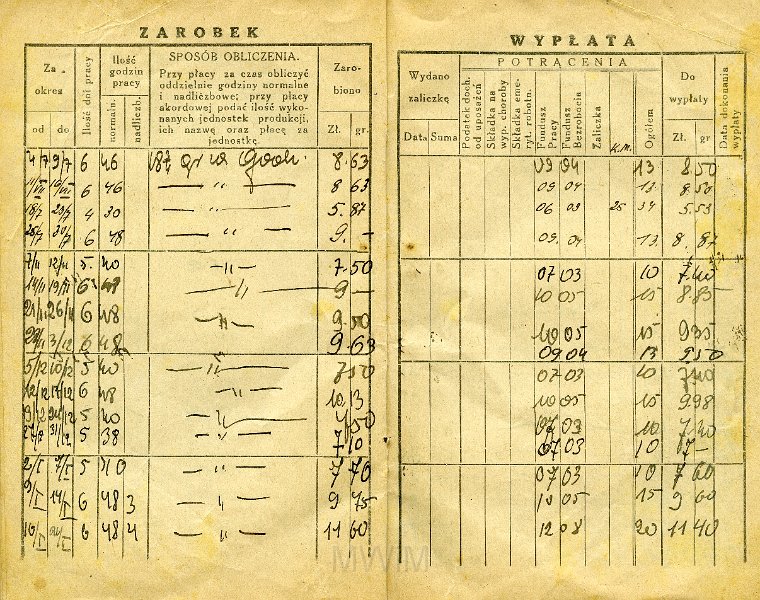 ZAROBEK
Za okres
od do
Ilość dni pracy
Ilość godzin pracy
normaln.
nadliczb.
SPOSÓB OBLICZENIA.
Przy płacy za czas obliczyć
oddzielnie godziny normalne
i nadliczbowe; przy płacy
akordowej podać ilość wyko-
nanych jednostek produkcji,
ich nazwę oraz płacę za
jednostkę.
Zaro-
biono
Zł. gr.
6 46 8.63
6 46 — " — 8 63
4 30 — " — 5.87
6 48 — " — 9. —
5. 40 — " — 7.50
6 48 — " — 9 —
6 48 — " — 9.50
6 48 — " — 9.63
5 40 — " — 7 50
6 48 — " — 10 13
5 40 — " —
5 38 — " — 7 10
5 40 — " — 7 70
6 48 3 — " — 9 75
6 48 4 — " — 11 60
WYPŁATA
Wydano
zaliczkę
Data Suma
POTRĄCENIA
Podatek doch.
od uposażeń
Składka na
wyp. choroby
Składka eme-
ryt. robotn.
Fundusz
Pracy
Fundusz
Bezrobocia
Zaliczka
K.M.
Ogółem
Do
wypłaty
Zł. gr
Data dokonania
wypłaty
09 04 13 8.50
09 04 13 8.50
06 03 25 34 5.53
09. 04 13 8. 87
07 03 10 7.40
10 05 15 8.85
10 05 15 9 35
09 04 13 9 50
07 03 10 7.40
10 05 15 9.98
07 03 10 7.40
07 03 10 7 —
07 03 10 7 60
10 05 15 9 60
12 08 20 11 40
MWIM